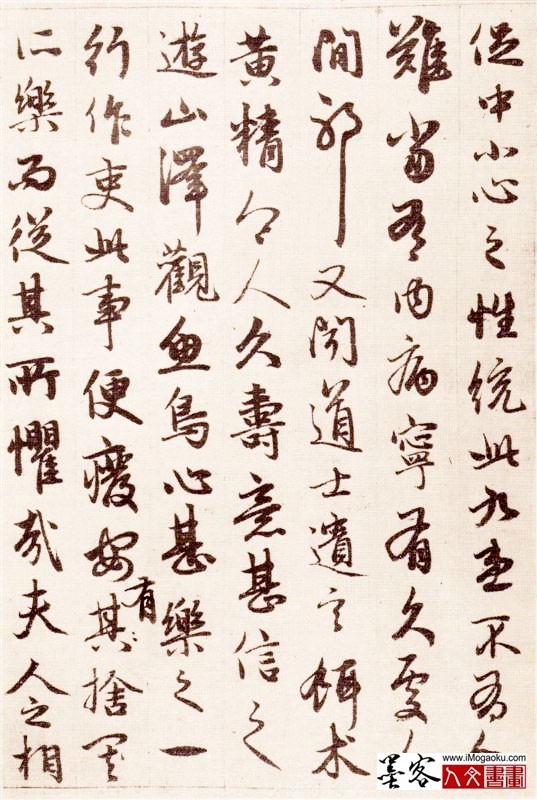 促中小心之性統此九患不有
難當有內病寧有久處
間邪又聞道士遺言餌术
黃精令人久壽意甚信之
遊山澤觀魚鳥心甚樂之一
行作吏此事便廢安有其捨其
所樂而從其所懼哉夫人之相
墨客
www.iMogaoku.com
人文書畫